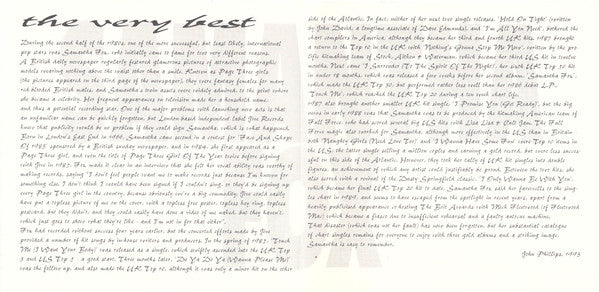 the very best
During the second half of the 1980s, one of the more successful, but least likely, international
pop stars was Samantha Fox, who initially came to fame for two very different reasons.
A British daily newspaper regularly featured glamorous pictures of attractive photographic
models wearing nothing above the waist other than a smile. Known as Page Three girls
(the pictures appeared in the third page of the newspaper), they were fantasy females for many
red-blooded British males, and Samantha's twin assets were widely admired, to the point where
she became a celebrity. Her frequent appearances on television made her a household name,
and thus a potential recording star. One of the major problems with launching new acts is that
an unfamiliar name can be quickly forgotten, but London-based independent label Jive Records
knew that publicity would be no problem if they could sign Samantha, which is what happened.
Born in London's East End in 1966, Samantha came second in a contest for 'Face And Shape
Of 1983' sponsored by a British sunday newspaper, and in 1984, she first appeared as a
Page Three girl, and won the title of Page Three Girl Of The Year twice before signing
with Jive in 1985. Fox made it clear in an interview that she felt her vocal ability was worthy of
making records, saying "I don't feel people want me to make records just because I'm known for
something else. I don't think I would have been signed if I couldn't sing, or they'd be signing
every Page Three girl in the country, because obviously we're a big commodity. You could easily
have put a topless picture of me on the cover, with a topless free poster, topless key ring, topless
postcard, but they didn't, and they could easily have done a video of me naked, but they haven't,
which just goes to show what they're like - and I'm not in for that either".
Fox had recorded without success four years earlier, but the concerted efforts made by Jive
provided a number of hit songs by in-house writers and producers. In the spring of 1986, 'Touch
Me (I Want Your Body)' was released as a single, which swiftly ascended into the UK Top
3 and US Top 5 - a good start. Three months later, 'Do Ya Do Ya (Wanna Please Me)'
was the follow up, and also made the UK Top 10, although it was only a minor hit on the other
side of the Atlantic. In fact, neither of her next two single releases, 'Hold On Tight' (written
by John David, a longtime associate of Dave Edmunds), and 'I'm All You Need', bothered the
chart compilers in America, although they became her third and fourth UK hits. 1987 brought
a return to the Top 10 in the UK with 'Nothing's Gonna Stop Me Now', written by the pro-
lific hitmaking team of Stock, Aitken & Waterman, which became her third US hit in twelve
months. Next came 'I Surrender (To The Spirit Of The Night)', her sixth UK Top 30 hit
in under 18 months, which was released a few weeks before her second album, 'Samantha Fox',
which made the UK Top 30, but performed rather less well than her 1986 debut L.P.
'Touch Me', which reached the UK Top 20 during a ten week chart life.
1987 also brought another smaller UK hit single, 'I Promise You (Get Ready)', but the big
news in early 1988 was that Samantha was to be produced by the hitmaking American team of
Full Force, who had scored several big US hits with Lisa Lisa & Cult Jam. The Full
Force magic also worked for Samantha, although more effectively in the US than in Britain -
both 'Naughty Girls (Need Love Too)' and 'I Wanna Have Some Fun' were Top 10 items in
the US, the latter single selling a million copies and earning a gold record, but were less success-
ful in this side of the Atlantic. However, they took her tally of UK hit singles into double
figures, an achievement of which any artist could justifiably be proud. Between the two hits, she
also scored with a revival of the Dusty Springfield classic, 'I Only Wanna Be With You',
which became her final UK Top 20 hit to date. Samantha Fox said her farewells to the sing-
les chart in 1989, and seems to have escaped from the spotlight in recent years, apart from a
heavily publicised appearance co-hosting The Brit Awards with Mick Fleetwood (of Fleetwood
Mac) which became a fiasco due to insufficient rehearsal and a faulty autocue machine.
That disaster (which was not her fault) has now been forgotten, but her substantial catalogue
of chart singles remains for everyone to enjoy with three gold albums and a striking image,
Samantha is easy to remember.
John Phillips, 1993